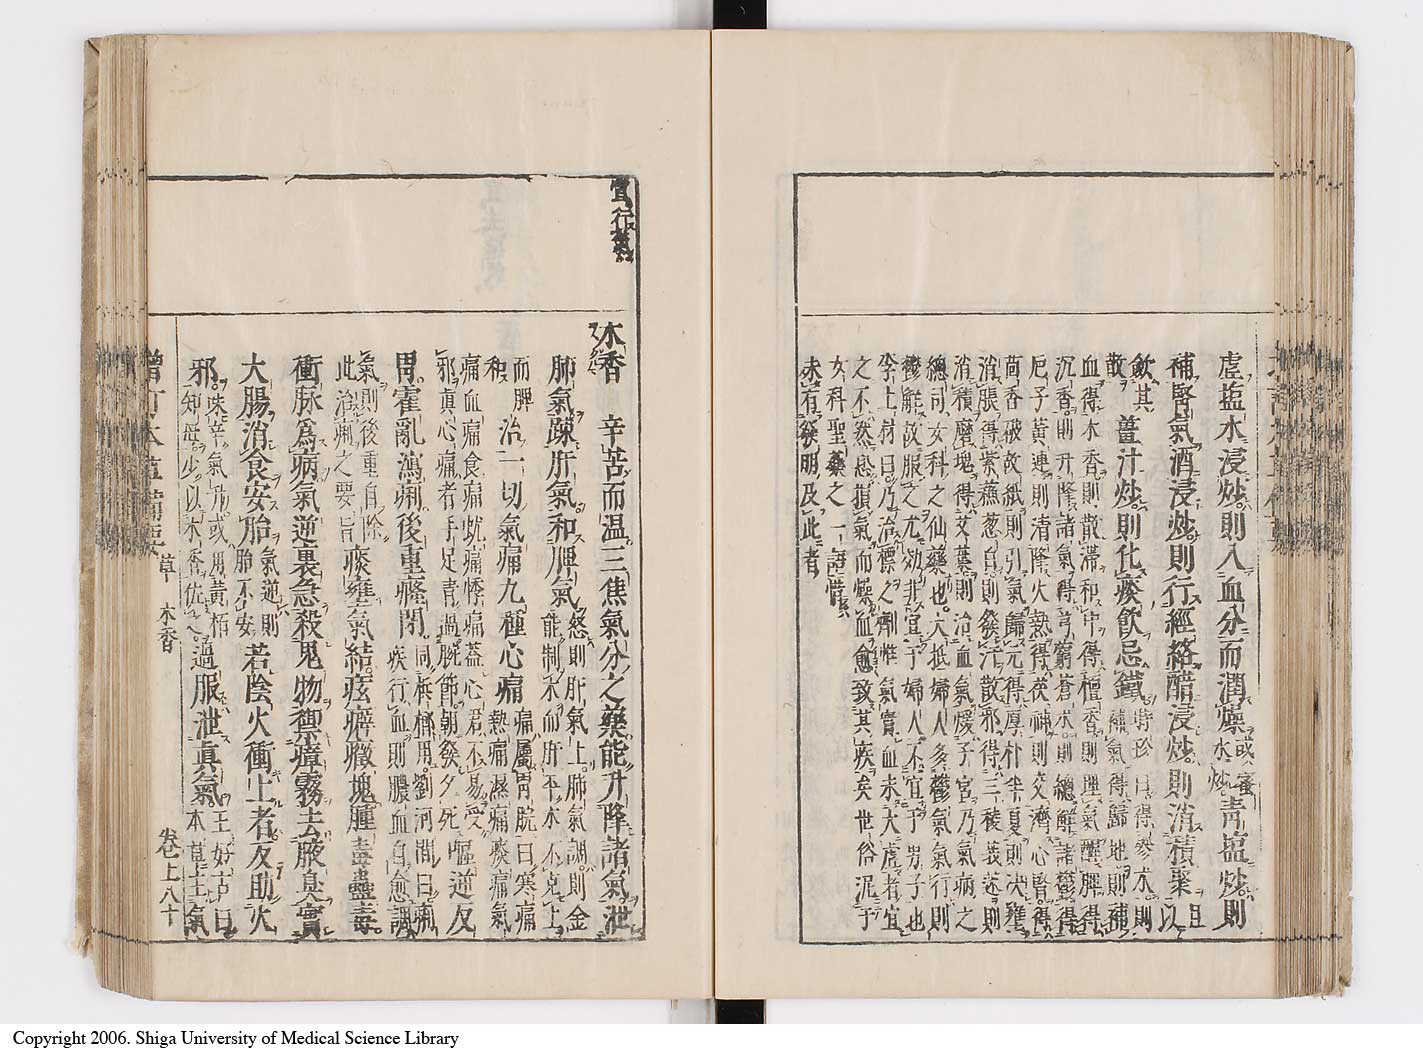 虛鹽水浸炒則入血分而潤燥
或蜜
水炒
青鹽炒則
補腎氣酒浸炒則行經絡醋浸炒則消積聚
且
以
斂其
散
薑汁炒則化痰飲忌鐵
時珍曰得參朮則
補氣得歸地則補
血得木香則散滯和中得檀香則理氣醒脾得
沉香則升降諸氣得芎藭蒼朮則總解諸鬱得
巵子黃連則清降火熱得茯神則交濟心腎得
茴香破故紙則引氣歸元得厚朴半夏則決壅
消脹得紫蘇葱白則發汗散邪得三稜莪蒁則
消積磨塊得艾葉則治血氣煖子宮乃氣病之
總司女科之仙藥也大抵婦人多鬱氣氣行則
鬱解故服之尤効非宜于婦人不宜于男子也
李士材曰乃治標之劑惟氣實血未大虛者宜
之不然恐損氣而燥血愈致其疾矣世俗泥于
女科聖藥之一語惜
未有發明及此者
宣行氣
木香
辛苦而溫三焦氣分之藥能升降諸氣泄
肺氣疎肝氣和脾氣
怒則肝氣上肺氣調則金
能制木而肝平木不克土
而脾
和
治一切氣痛九種心痛
痛屬胃脘曰寒痛
熱痛濕痛痰痛氣
痛血痛食痛蚘痛悸痛蓋心君不易受
邪眞心痛者手足青過腕節朝發夕死
嘔逆反
胃霍亂瀉痢後重癃閉
同檳榔用劉河間曰痢
疾行血則膿血自愈調
氣則後重自除
此治痢之要旨
痰壅氣結痃癖癥塊腫毒蠱毒
衝脉爲病氣逆裏急殺鬼物禦瘴霧去腋臭實
大腸消食安胎
氣逆則
胎不安
若陰火衝上者反助火
邪
味辛氣升或用黃栢
知母少以木香佐之
過服泄眞氣
王好古曰
本草主氣
增訂本草備要
草 木香
卷上八十